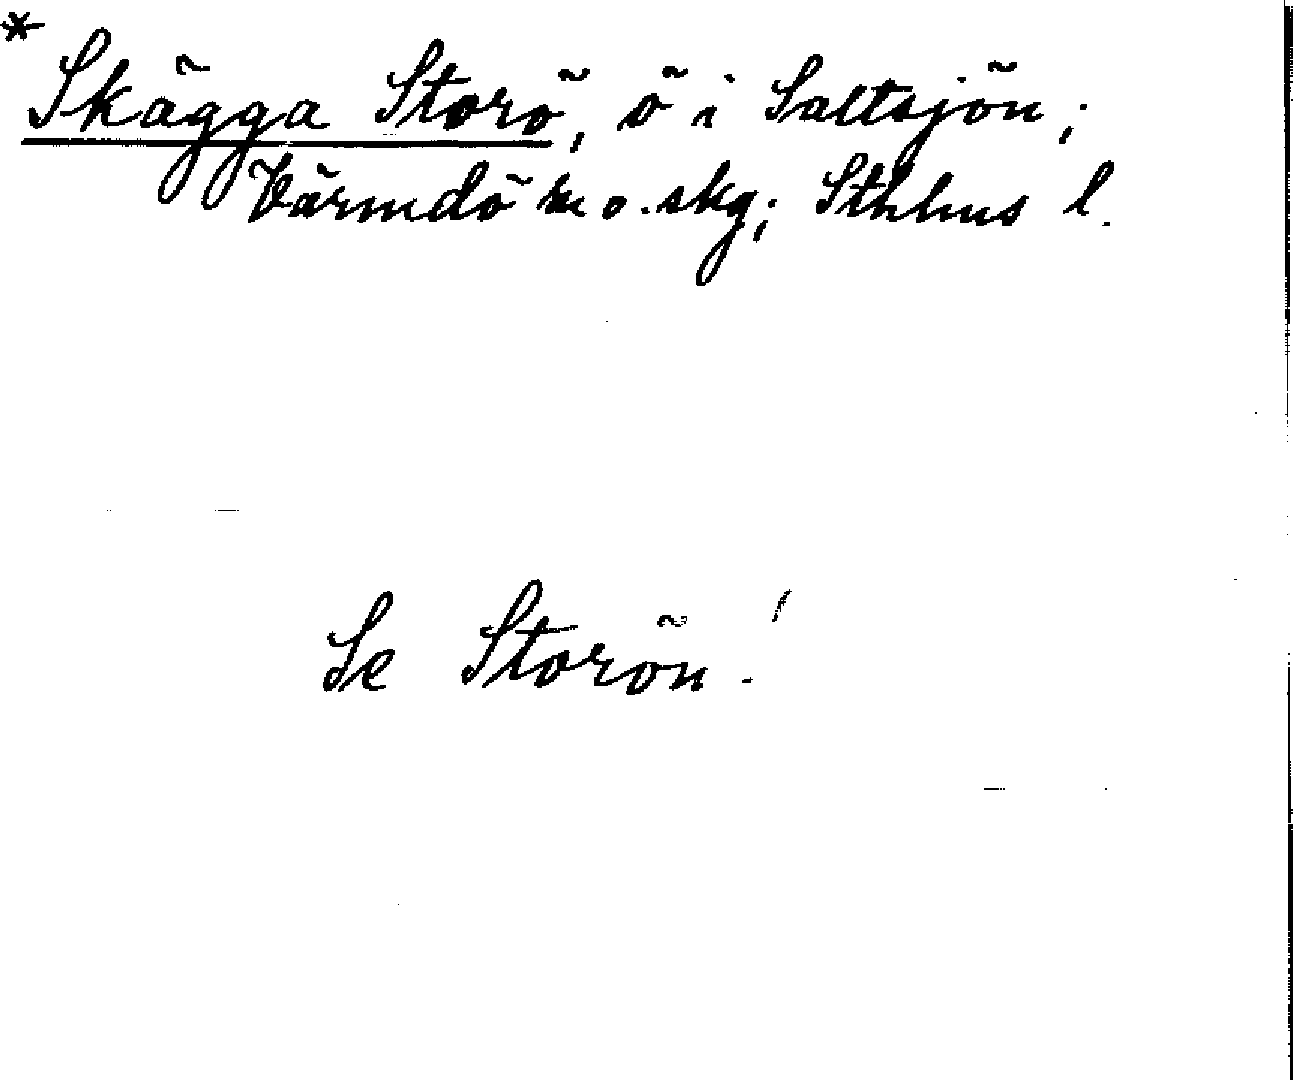 * Skägga Storö, ö i Saltsjön;
Värmdö sn o. skg; Sthlms l.
Se Storön!